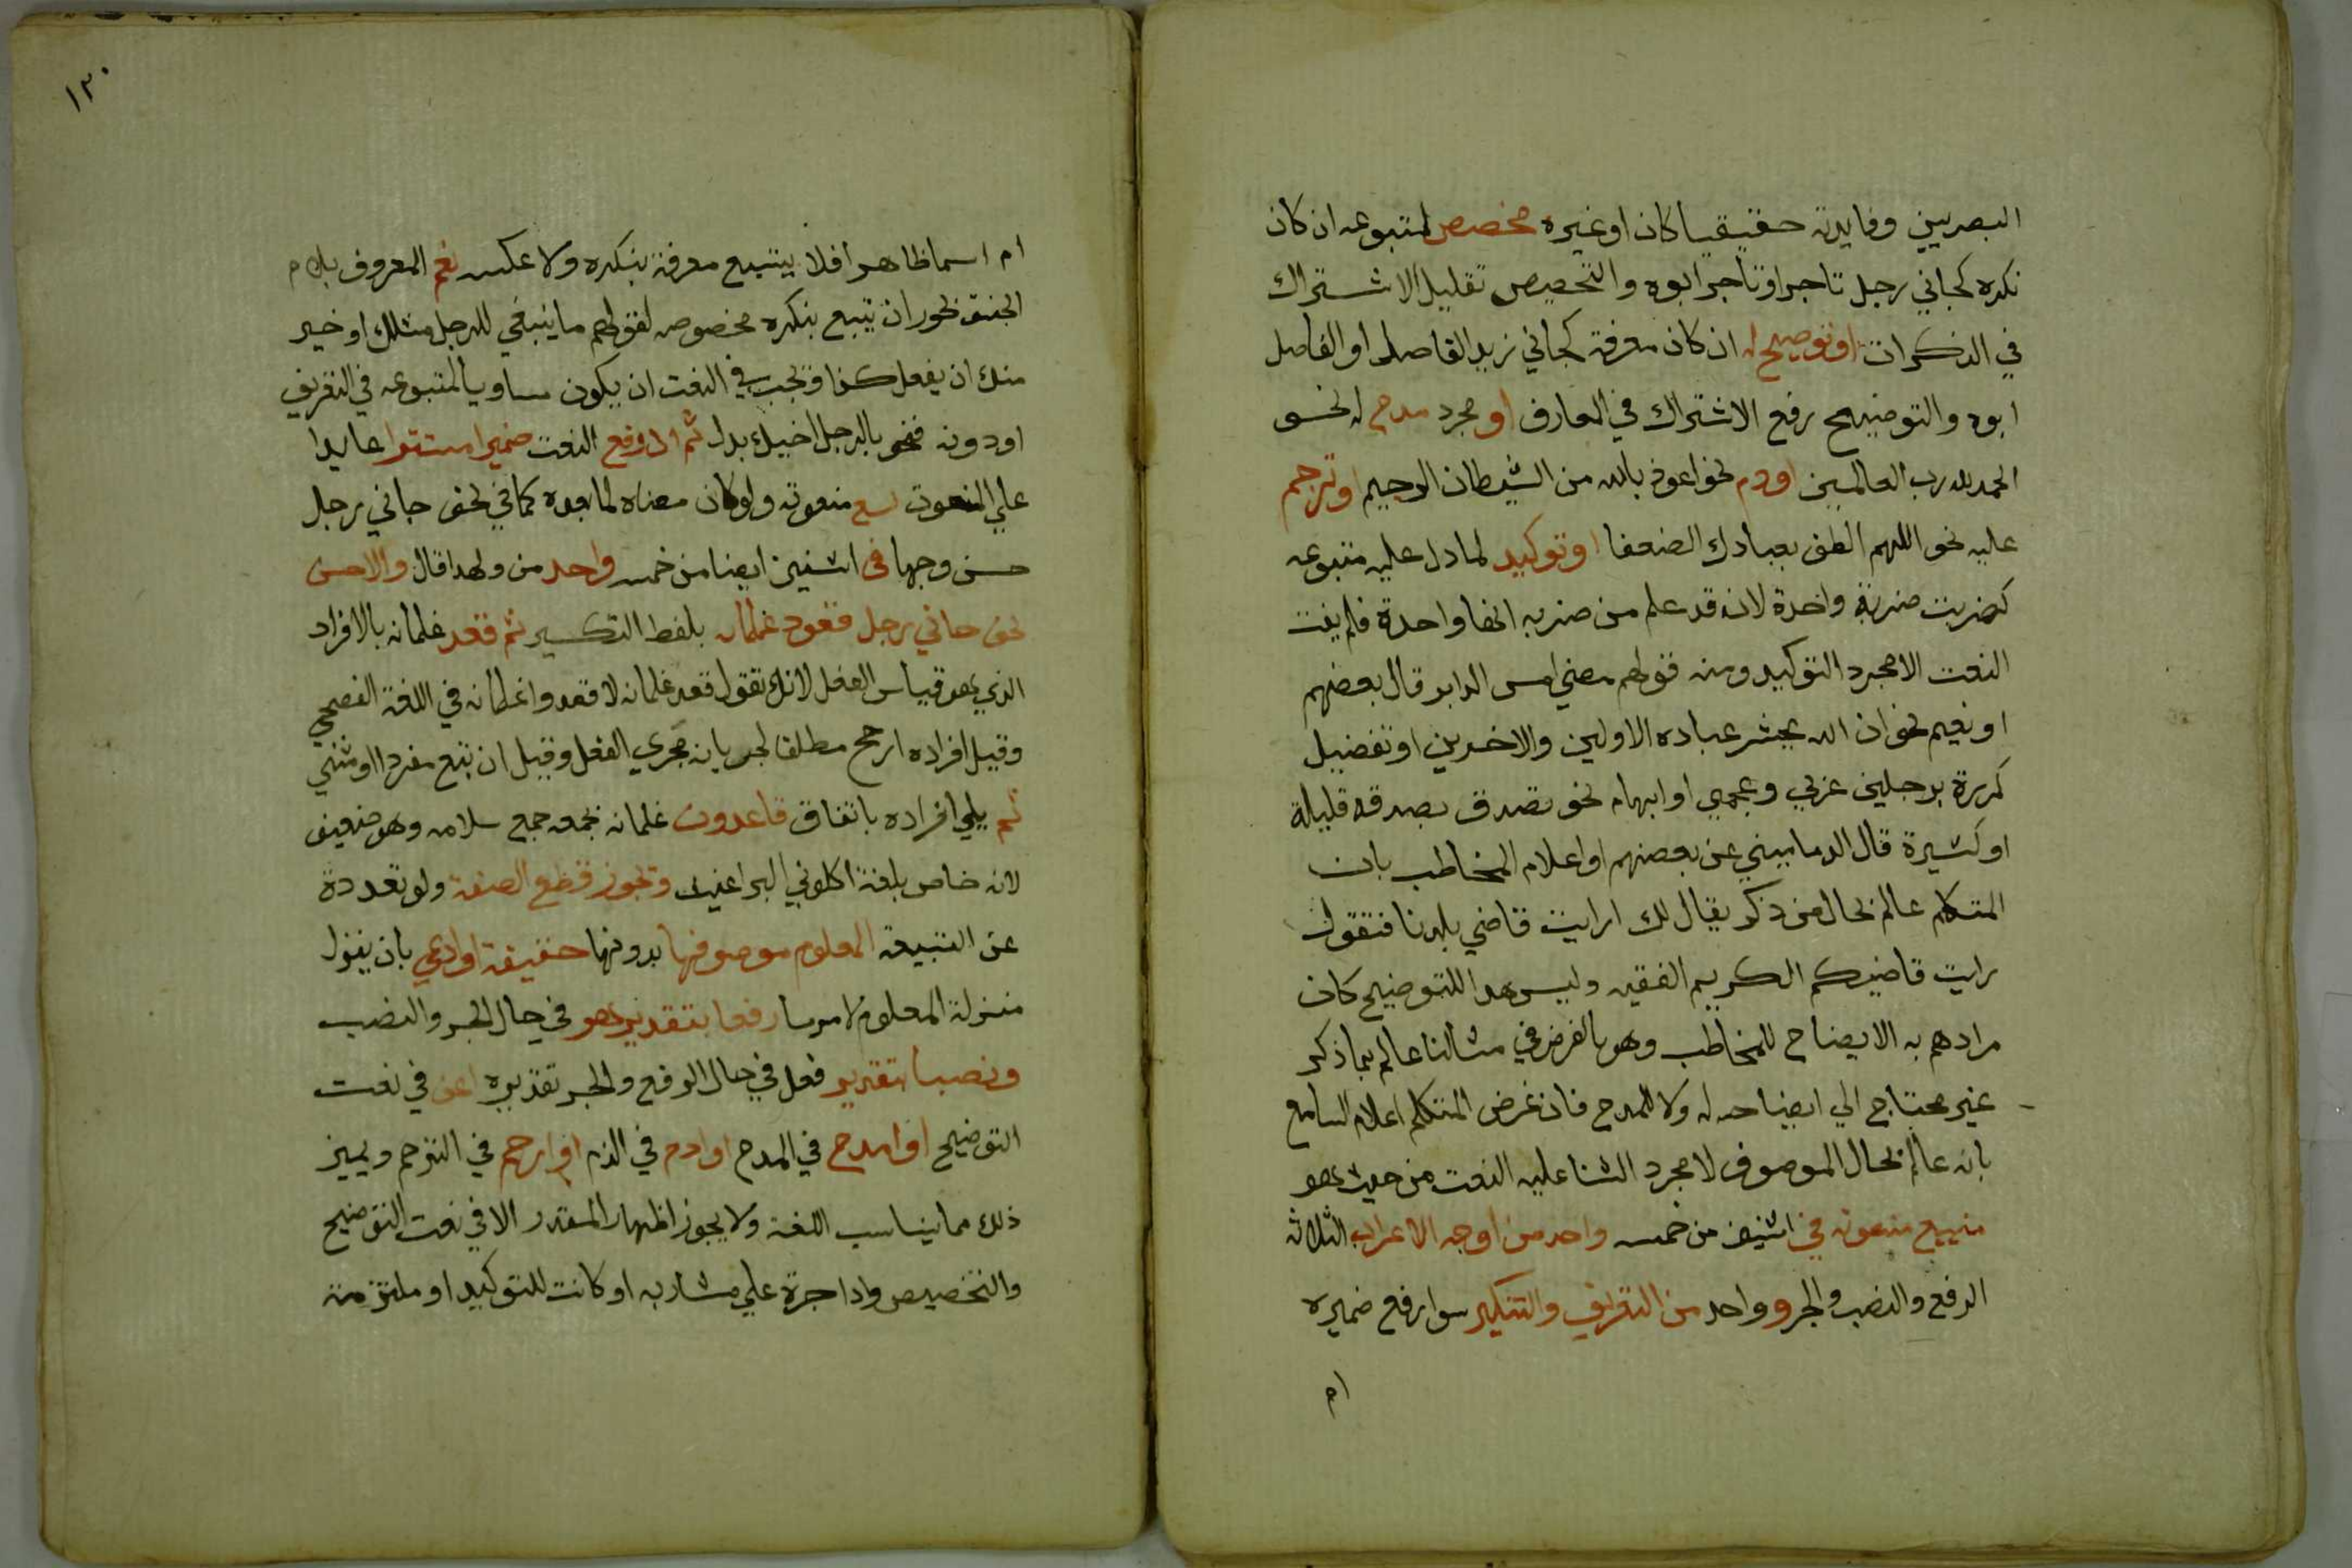 البصريين وفايدته حقيقيا كان او غيره مخصص لمتبوعه ان كان
نكره كجاني رجل تاجر او تاجر ابوه والتخصيص تقليل الاشتراك
في النكرات او توضيح له ان كان معرفة كجاني زيد الفاضل او الفاضل
ابوه والتوضيح رفع الاشتراك في المعارف او مجرد مدح له نحو
الحمد لله رب العالمين او ذم نحو اعوذ بالله من الشيطان الرجيم او ترحم
عليه نحو اللهم الطف بعبادك الضعفا او توكيد لما دل عليه متبوعه
كضربت ضربة واحدة لانه قد علم من ضربه انها واحدة فلم يفت
النعت الا مجرد التوكيد ومنه قولهم مضي امس الدابر قال بعضهم
او تعيم نحو ان الله يحشر عباده الاولين والاخرين او تفضيل
كمررة برجلين عربي وعجمي او ابهام نحو تصدق بصدقه قليلة
او كثيرة قال الدماميني عن بعضهم او اعلام المخاطب بان
المتكلم عالم بحال من ذكر يقال لك ارايت قاضي بلدنا فتقول
رايت قاضيكم الكريم الفقيه وليس هدا للتوضيح كان
مرادهم به الايضاح للمخاطب وهو بالفرض في مثالنا عالم بما ذكر
غير محتاج الي ايضاحه له ولا للمدح فان غرض المتكلم اعلام السامع
بانه عالم بحال الموصوف لا مجرد الثنا عليه النعت من حيث هو
يتبع منعوته في اثنين من خمسه واحد من اوجه الاعراب الثلاثه
الرفع والنصب والجر وواحد من التعريف والتنكير سوا رفع ضميره
ام
١٣٠
ام اسما ظاهرا فلا يتبع معرفة بنكره ولا عكسه نعم المعروف بلام
الجنس يجوز ان تتبع بنكره مخصوصه لقولهم ما ينبغي للرجل مثلك او خير
منك ان يفعل كذا ويجب في النعت ان يكون مساويا لمتبوعه في التعريف
او دونه فنحو بالرجل اخيك بدل ثم ان رفع النعت ضميرا مستترا عايدا
علي المنعوت تبع منعوته ولو كان معناه لما بعده كما في نحو جاني رجل
حسن وجها في اثنين ايضا من خمسه واحد من ولهدا قال والاحسن
نحو جاني رجل قعود غلمانه بلفظ التكسير ثم قعد غلمانه بالافراد
الذي هو قياس الفعل لانك تقول قعد غلمانه لا قعدوا غلمانه في اللغة الفصحي
وقيل افراده ارجح مطلقا لجريانه مجري الفعل وقيل ان تبع مفردا او مثني
ثم يلي افراده باتفاق قاعدون غلمانه بجمعه جمع سلامه وهو ضعيف
لانه خاص بلغة اكلوني البراغيث ويجوز قطع الصفة ولو تعددة
عن التبيعة المعلوم موصوفها بدونها حقيقة او ادعي بان ينزل
منزلة المعلوم لامر ما رفعا بتقدير هو في حال الجر والنصب
ونصبا بتقدير فعل في حال الرفع والجر تقديره اعني في نعت
التوضيح او امدح في المدح او اذم في الذم او ارحم في الترحم ويميز
ذلك مما يناسب اللغة ولا يجوز اظهار المقدر الا في نعت التوضيح
والتخصيص واذا جرة علي مشار به او كانت للتوكيد او ملتزمة